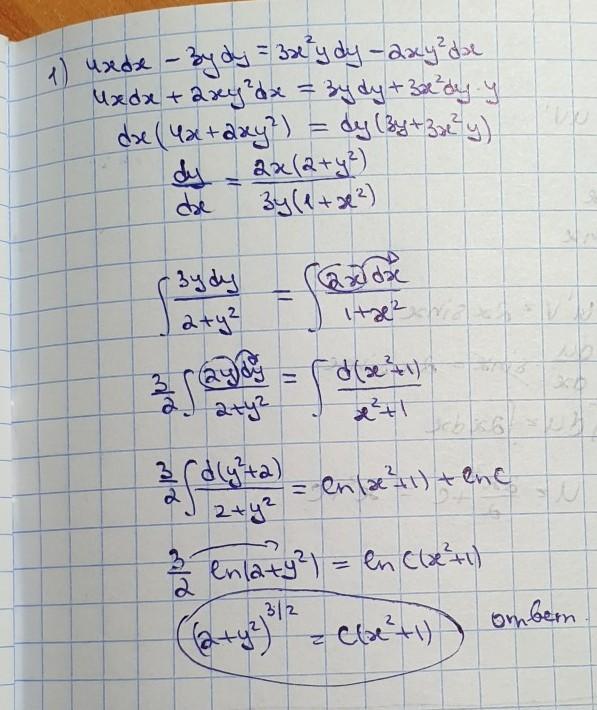 1) 4xdx - 3ydy = 3x²ydy - 2xy²dx
4xdx + 2xy²dx = 3ydy + 3x²dy·y
dx(4x+2xy²) = dy(3y+3x²y)
dy/dx = 2x(2+y²)/3y(1+x²)
∫ 3ydy/2+y² = ∫ 2xdx/1+x²
3/2 ∫ 2ydy/2+y² = ∫ d(x²+1)/x²+1
3/2 ∫ d(y²+2)/2+y² = ln(x²+1) + lnC
3/2 ln(2+y²) = ln C(x²+1)
(2+y²)^3/2 = C(x²+1) ответ.